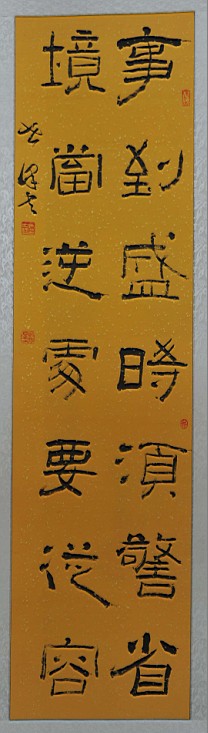 事到盛時須警省
境當逆處要從容